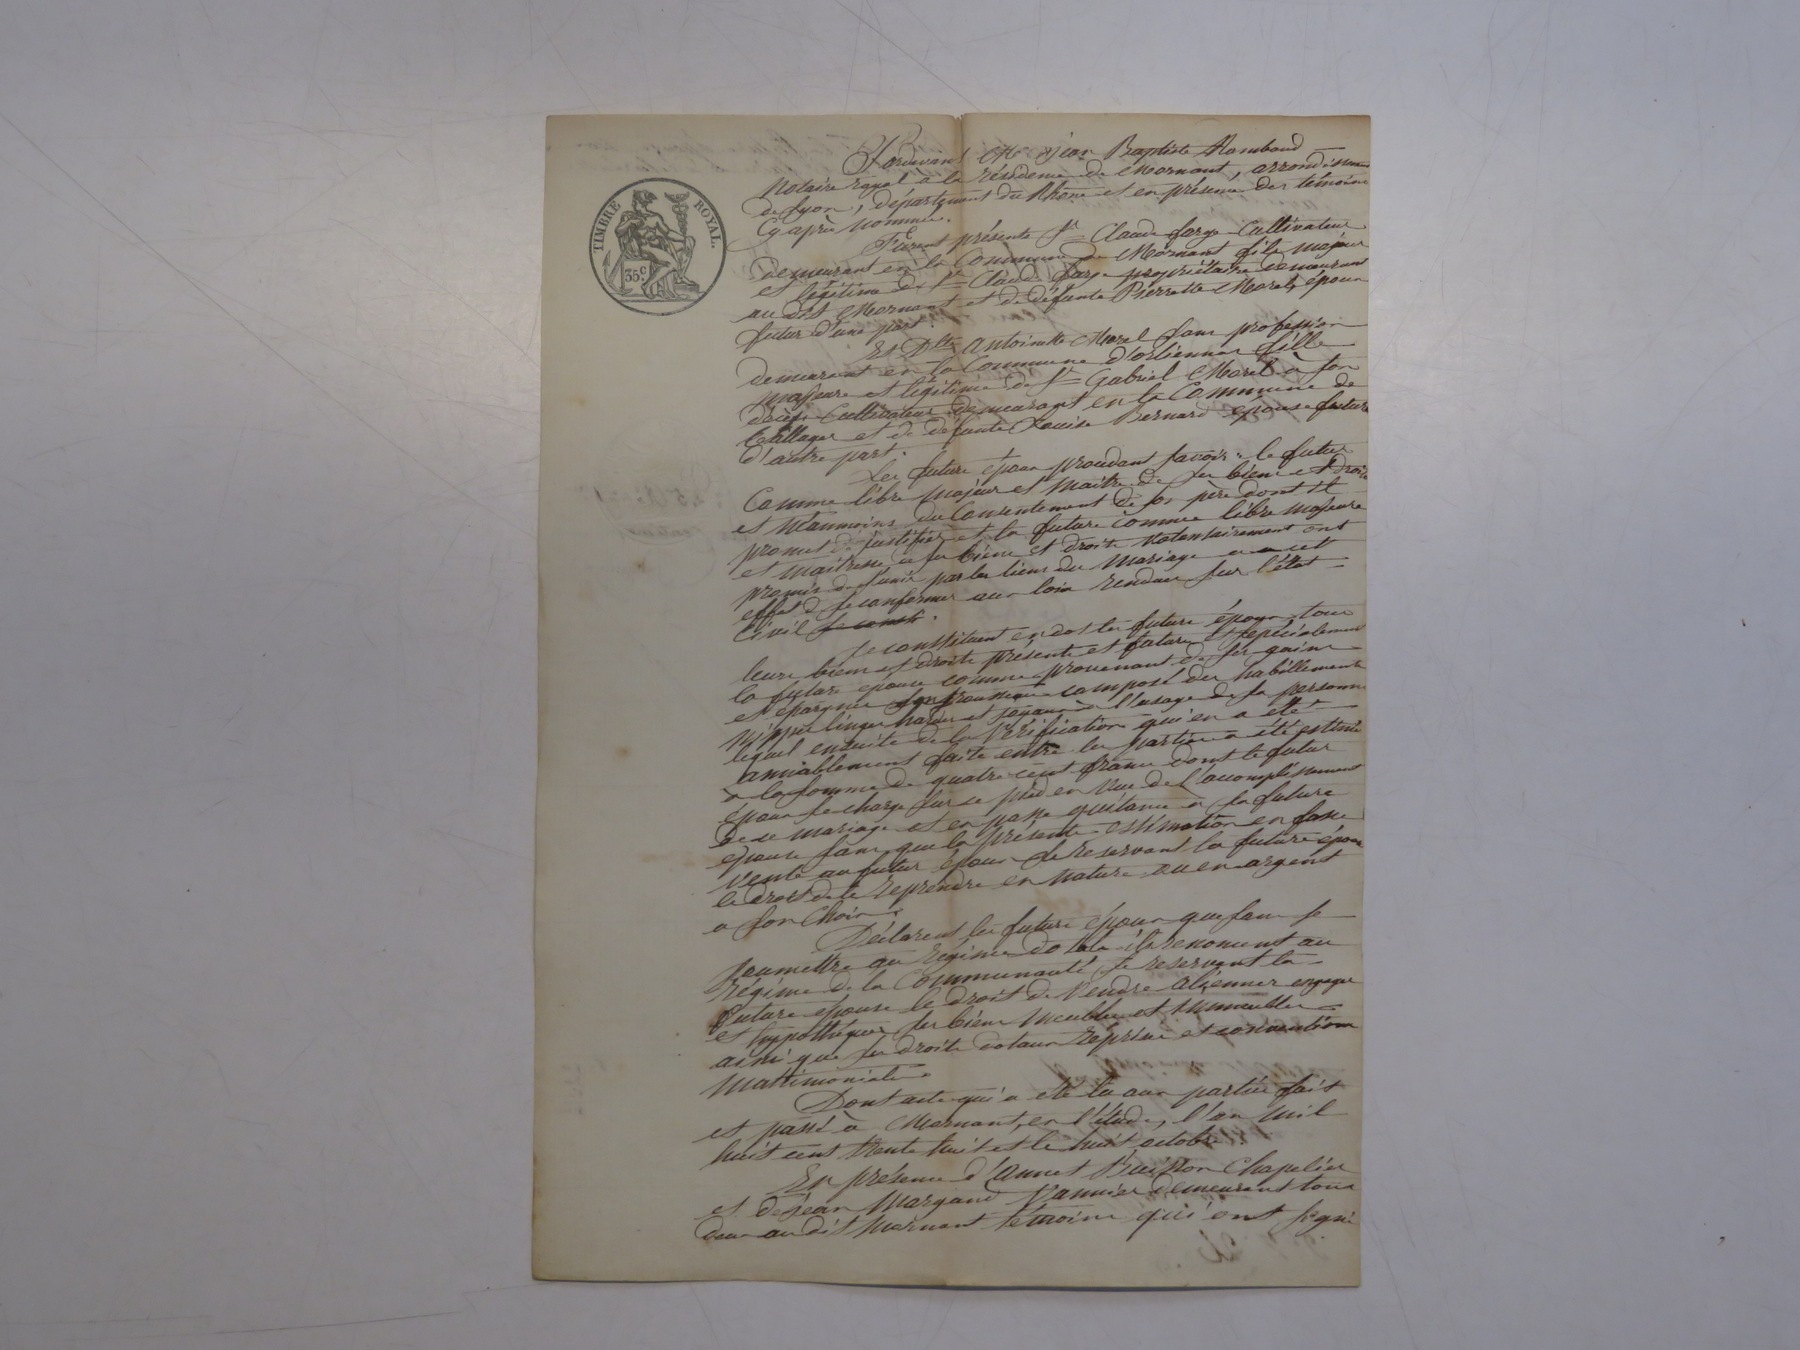 TIMBRE ROYAL.
35 c
Pardevant Me Jean Baptiste Rambaud
Notaire royal à la résidence de Mornant, arrondissement
de Lyon, département du Rhône et en présence des témoins
Cy après nommés.
Furent présents Sr Claude farge Cultivateur
demeurant en la Commune de Mornant fils majeur
et légitime de Sr Claude farge propriétaire demeurant
au dit Mornant et de défunte Pierrette Morel, époux
futur d'une part.
Et Dlle Antoinette Morel sans profession
demeurant en la Commune d'orliennas fille
majeure et légitime de Sr Gabriel Morel à son
décès Cultivateur demeurant en la Commune de
et de défunte Louise Bernard épouse future
d'autre part.
Les futurs époux procédant savoir: le futur
Comme libre majeur et maître de ses biens et droits
et néanmoins du Consentement de son père dont il
promet de justifier et la future comme libre majeure
et maitresse de ses biens et droits volontairement ont
promis de s'unir par les liens du Mariage et à cet
effet de se conformer aux lois rendues sur l'état
Civil se const.
Se constituent en dot les futurs époux tous
leurs biens et droits présents et futurs et spécialement
la future épouse comme provenant de ses gains
et épargnes son trousseau composé des habillements
nippes linges hardes et joyaux à l'usage de sa personne
lequel ensuite de la Vérification qui en a été
amiablement faite entre les parties a été estimé
à la somme de quatre cent francs dont le futur
époux se charge sur ce pied en vue de l'accomplissement
de ce mariage et en passe quittance à sa future
épouse sans que la présente estimation en fasse
vente au futur époux se reservant la future épouse
le droit de le reprendre en nature ou en argent
a son Choix.
Déclarent les futurs époux que sans se
soumettre au Régime dotal ils renoncent au
Régime de la Communauté se reservant la
future épouse le droit de Vendre aliénner engager
et hypothéquer ses biens Meubles et Immeubles
ainsi que ses droits dotaux reprises et conventions
Matrimoniales.
Dont acte qui a été lu aux parties fait
et passé à Mornant, en l'étude, l'an mil
huit cent trente huit et le huit octobre
En présence d'annet Buisson Chapelier
et de Jean Margand Vannier demeurant tous
deux au dit Mornant témoins qui ont signé